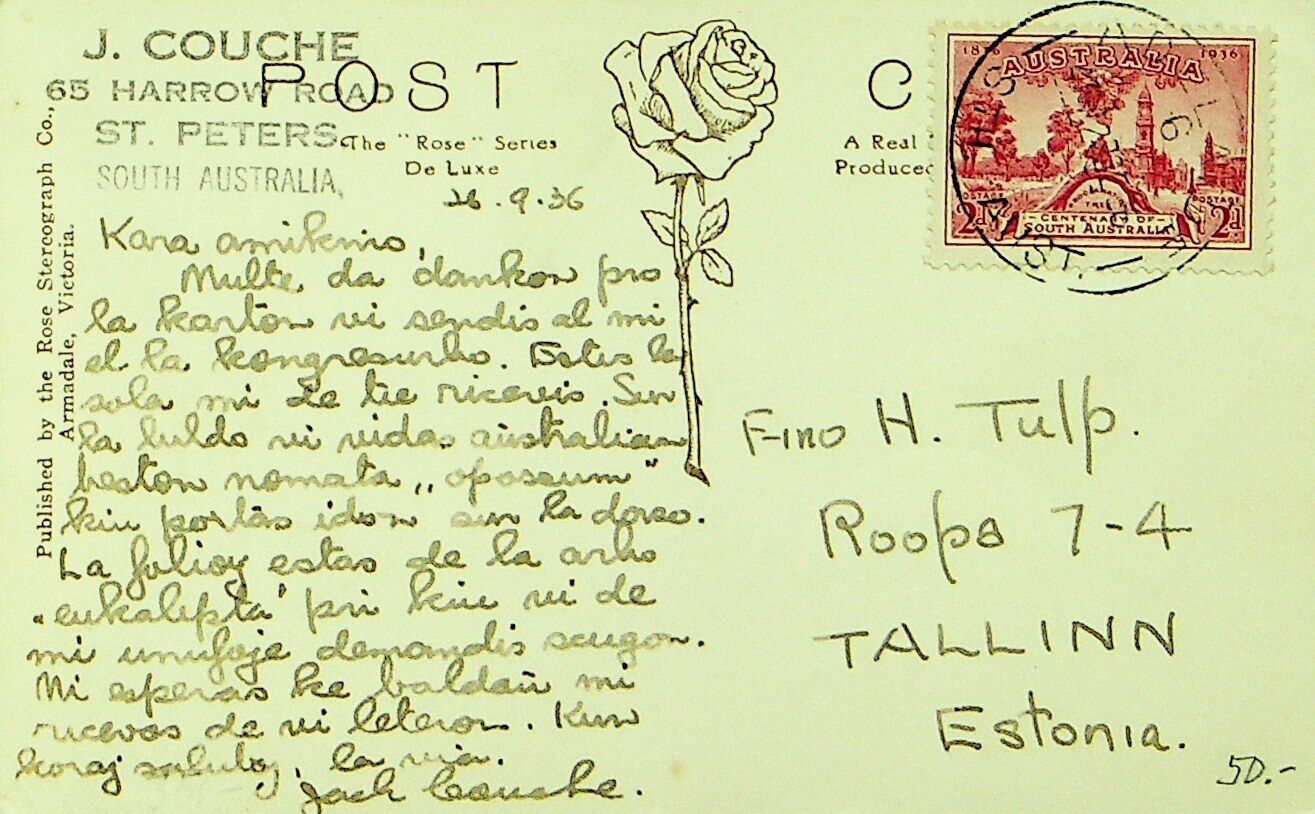 J. COUCHE
65 HARROW ROAD
ST. PETERS.
SOUTH AUSTRALIA,
POST C
The "Rose" Series
De Luxe
A Real
Produced
Published by the Rose Stereograph Co.,
Armadale, Victoria.
1836 AUSTRALIA 1936
POSTAGE POSTAGE
2d CENTENARY OF 2d
SOUTH AUSTRALIA
26.9.36
Kara amikino,
Multe da dankon pro
la karton vi sendis al mi
el la kongresurbo. Estis la
sola mi de tie ricevis. Sur
la bildo vi vidas aŭstralian
beston nomata „oposum"
kiu portas idon sur la dorso.
La folioj estas de la arbo
"eukalipta" pri kiu vi de
mi unufoje demandis sciigon.
Mi esperas ke baldaŭ mi
ricevos de vi leteron. Kun
koraj salutoj, la via.
Jack Couche.
F-ino H. Tulp.
Roopa 7-4
TALLINN
Estonia.
50.-